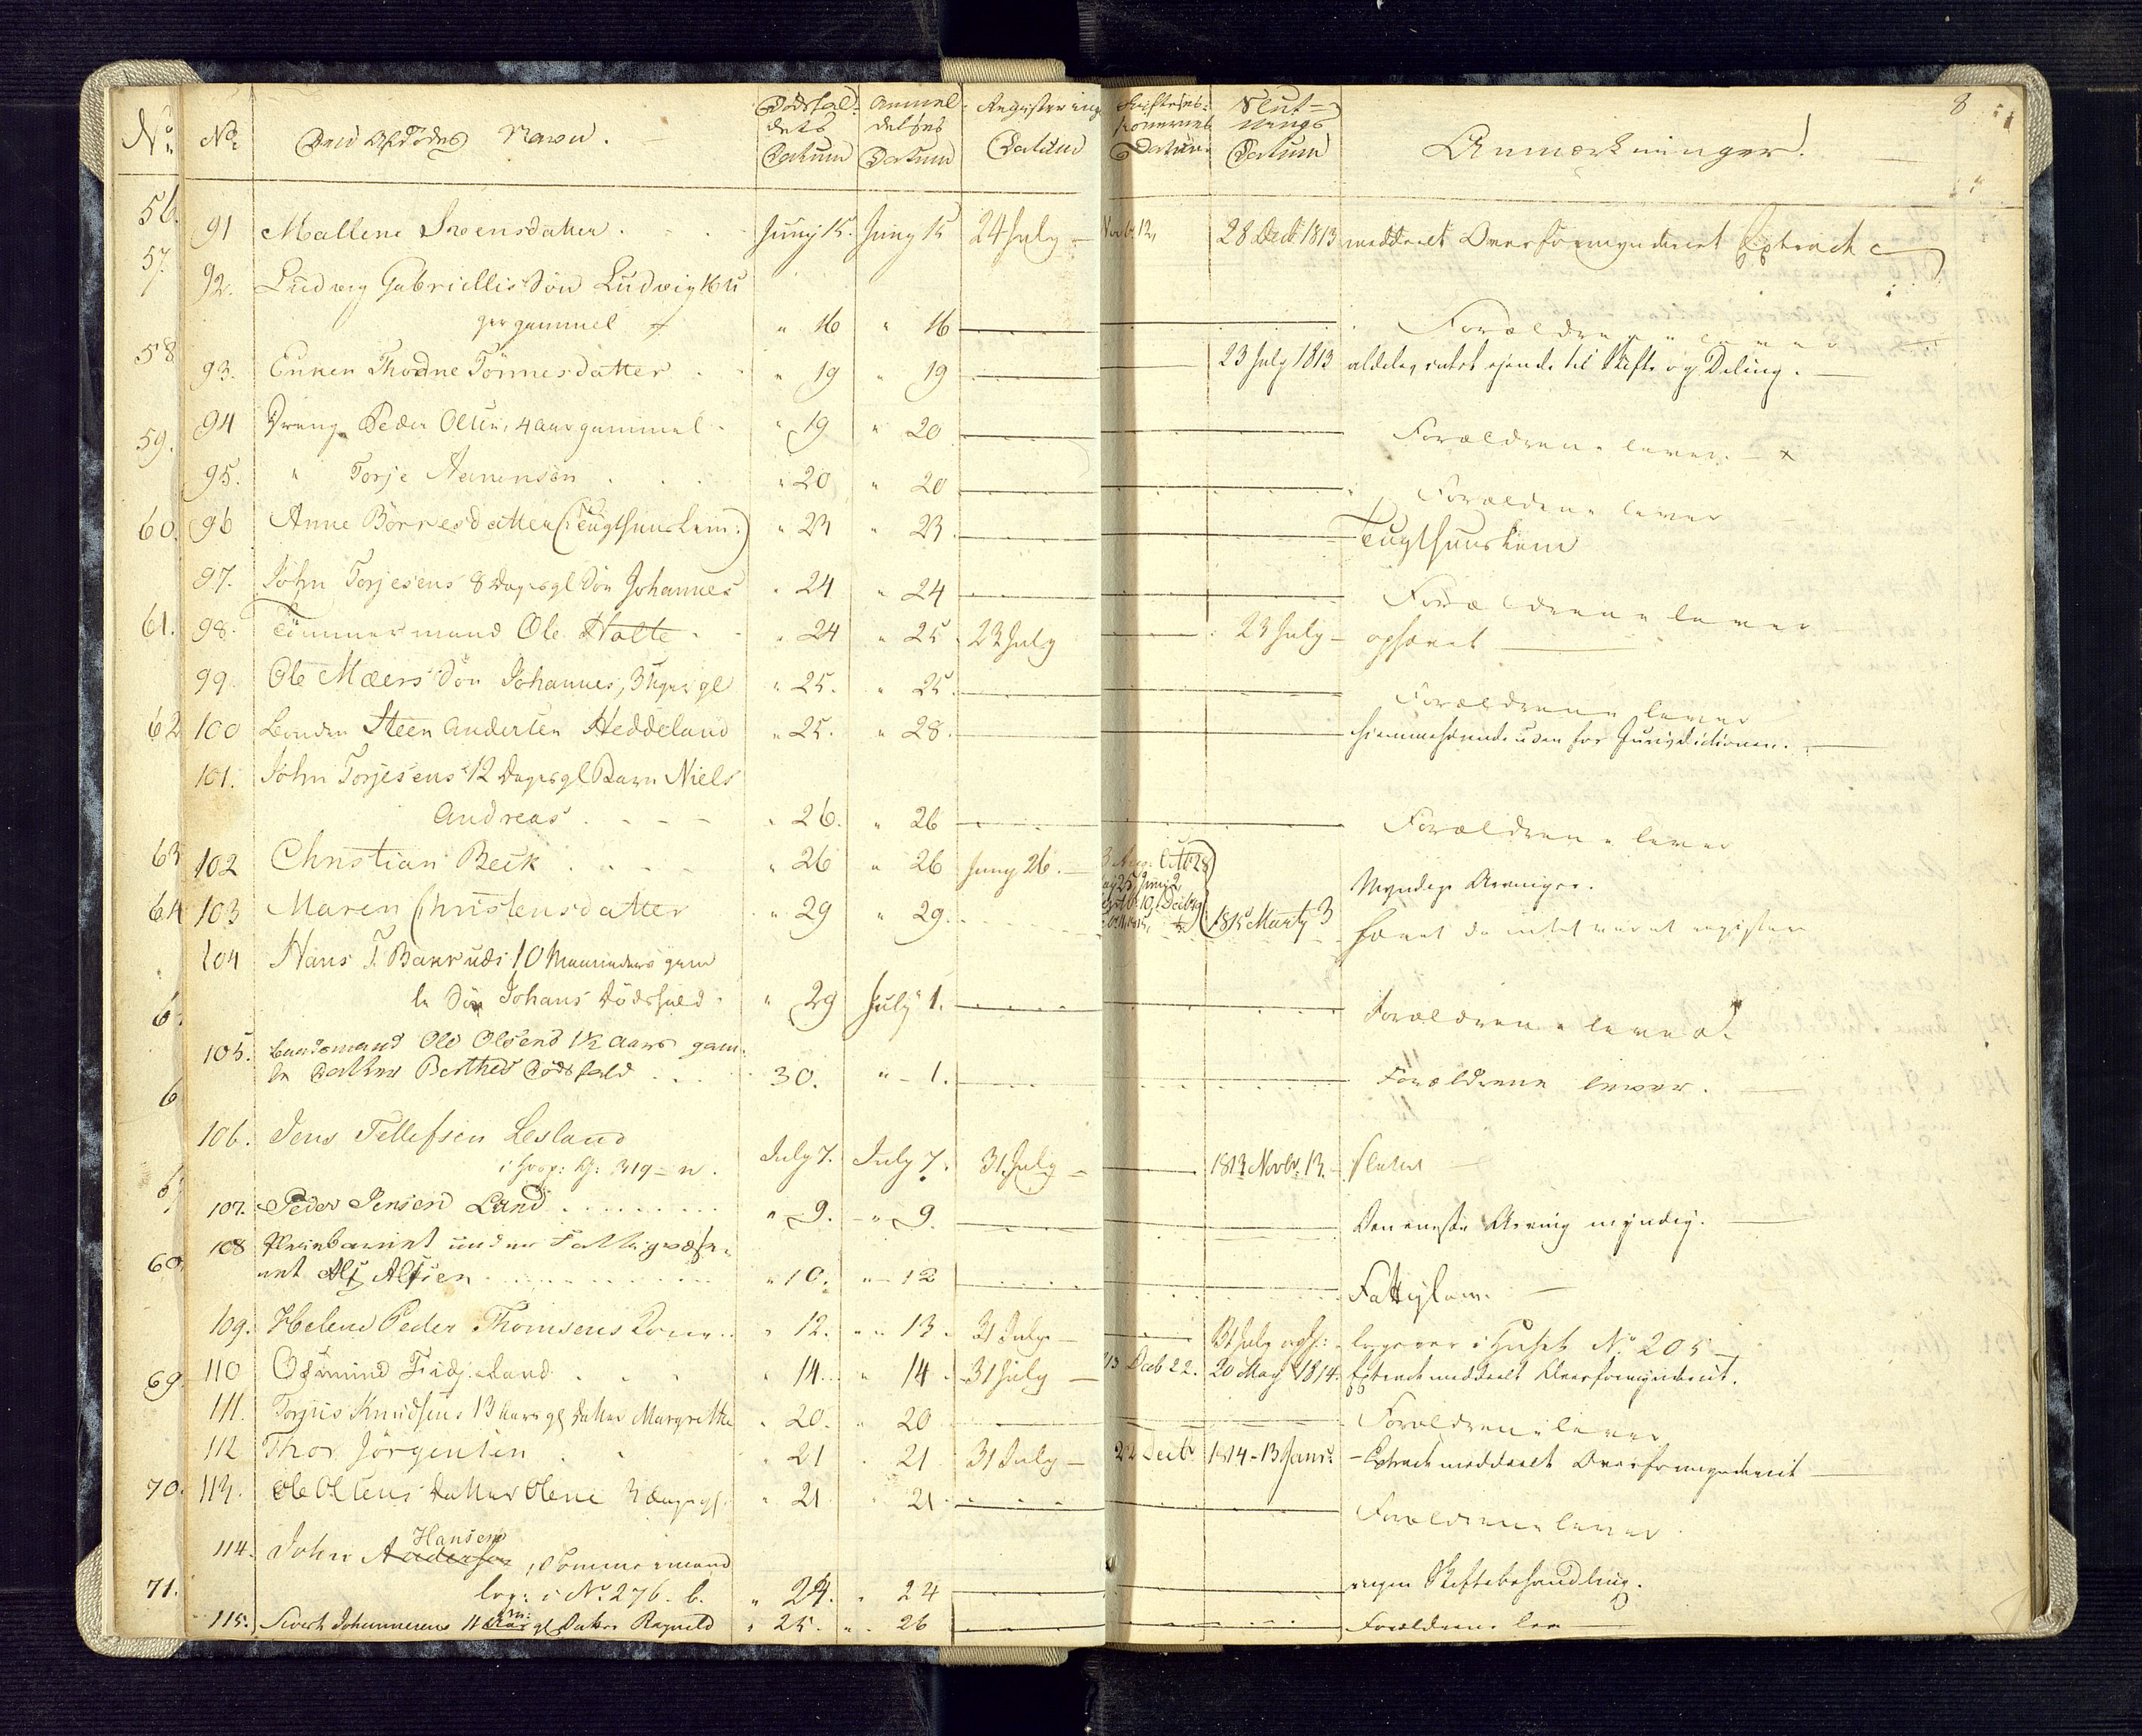 8
No No Den Afdødes Navn. Dødsfaldets Datum Anmeldelses Datum Registerings Datum Datum Slutnings Datum Anmærkninger.
91 Mallene Svensdatter Juny 15. Juny 15 24 July 12, 28 Decb 1813 meddeelt Overformynderiet Extract
92. Ludvig Gabriellis Søn Ludvig 16 U
ger gammel " 16 " 16 Forældrene lever
93. Enken Thodne Tönnesdatter " 19 " 19 23 July 1813 aldeles intet ejende til Skifte og Deling.
94 Dreng Peder Olsen, 4 aar gammel " 19 " 20 Forældrene lever
95. " Torje Aanensøn " 20 " 20 Forældrene lever
96 Anne Börresdatter (Tugthuuslem:) " 23 " 23. Tugthuuslem
97. John Torjesens 8 Dages gl Søn Johannes " 24 " 24 Forældrene lever
98. Tömmermand Ole Holte " 24 " 25 23 July 23 July ophævet
99. Ole Mæers Søn Johannes, 3 Uger gl " 25. " 25. Forældrene lever
100 Bonden Steen Andersen Heddeland " 25. " 28. hiemmehørende uden for Jurisdictionen.
101. John Torjesens 12 Dages gl Barn Niels
Andreas " 26. " 26 Forældrene lever
102 Christian Beck " 26 " 26 Juny 26. Myndige Arvinger.
103 Maren Christensdatter " 29 " 29. 1815 Marty 3 hævet da intet været registere
104 Hans T. 10 Maaneders gam
le Søn Johans Dødsfald " 29 July 1. Forældrene lever
105. Ole Olsens 1½ Aars gam
le Datter Berthes Dødsfald 30. " 1. Forældrene lever.
106. Jens Tellefsen Lesland
319 July 7. July 7. 31 July 1813 Novbr. 13. sluttet
107. Peder Jensen Lund " 9. " 9. Den eneste Arving myndig.
108 Pleiebarnet under Fattigvæse
net Alf Alfsen " 10. " 12 Fattiglem.
109. Helene Peder Thomsens Kone " 12. " 13. 31 July 31 July i Huset No 205
110 Osmund Fidjeland " 14. " 14 31 July Decb 22. 20 May 1814. Extract meddeelt Overformynderiet.
111. Torjus Knudsens 13 Aars gl Datter Margrethe " 20. " 20 Forældrene lever
112 Thor Jörgensen " 21 " 21 31 July 22 Decb 1814-13 Janr: Extract meddeelt Overformynderiet
113. Ole Olsens Datter Olene 3 Dages gl. " 21 " 21 Forældrene lever
Hansen
114. John Andersen, Tömmermand
log: i No 276. b. " 24. " 24 ingen Skiftebehandling.
115. Sivert Johannesens 11 gl Datter Ragnild " 25. " 26 Forældrene lev
56.
57.
58
59.
60.
61.
62
63
64
6
6
69
70.
71.